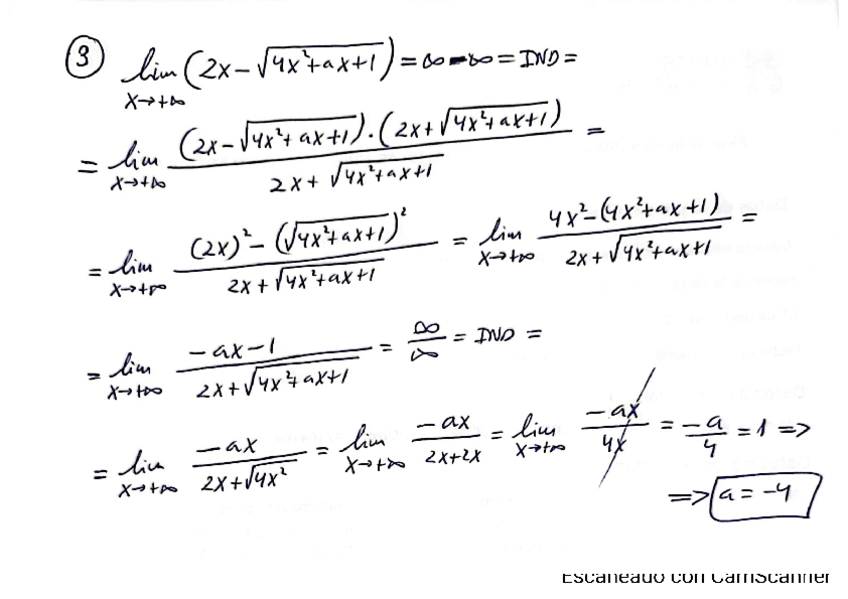 ③ lim x→+∞ (2x-√(4x²+ax+1)) = ∞-∞ = IND =
= lim x→+∞ (2x-√(4x²+ax+1))·(2x+√(4x²+ax+1)) / 2x+√(4x²+ax+1) =
= lim x→+∞ (2x)²-(√(4x²+ax+1))² / 2x+√(4x²+ax+1) = lim x→+∞ 4x²-(4x²+ax+1) / 2x+√(4x²+ax+1) =
= lim x→+∞ -ax-1 / 2x+√(4x²+ax+1) = ∞/∞ = IND =
= lim x→+∞ -ax / 2x+√(4x²) = lim x→+∞ -ax / 2x+2x = lim x→+∞ -ax / 4x = -a/4 = 1 =>
=> a = -4
Escaneado con CamScanner